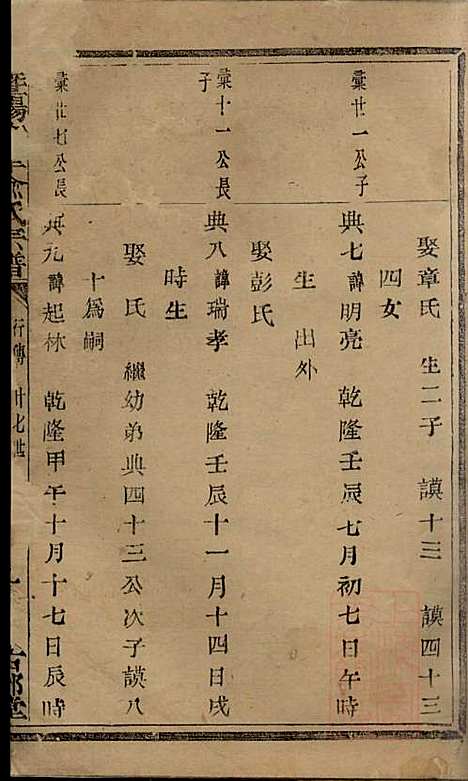 娶章氏 生二子 謨十三 謨四十三
四女
彙廿一公子
典七諱明亮 乾隆壬辰七月初七日午時
生 出外
娶彭氏
彙十一公長
子
典八諱瑞孝 乾隆壬辰十一月十四日戌
時生
娶氏 繼幼弟典四十三公次子謨八
十為嗣
彙廿七公長
典九諱起林 乾隆甲午十月十七日辰時
暨陽 俞氏宗譜 行傳 廿七世